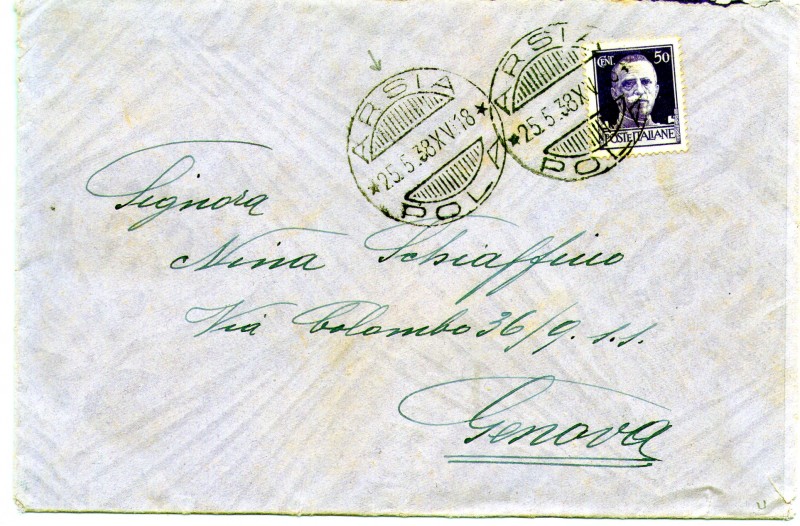 ARSIA
* 25.5.38 XVI 18 *
POLA
ARSIA
* 25.5.38 XVI
POLA
CENT. 50
POSTE ITALIANE
Signora
Nina Schiaffino
Via Colombo 36/9. s.s.
Genova